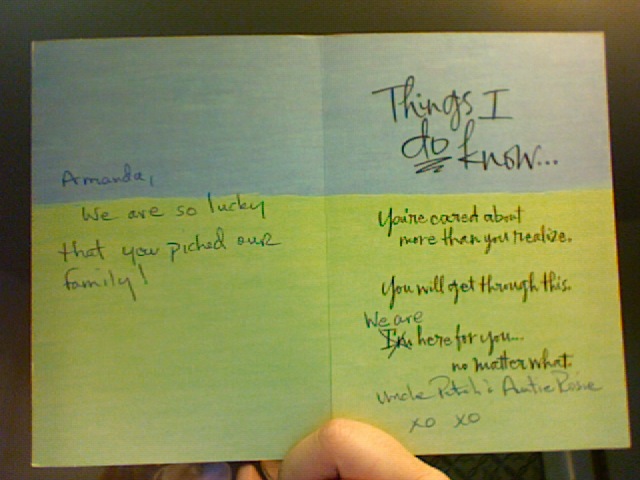 Amanda,
We are so lucky
that you picked our
family!
Things I
do know...
You're cared about
more than you realize.
You will get through this.
We are
I'm here for you...
no matter what.
Uncle & Auntie Rosie
xo xo